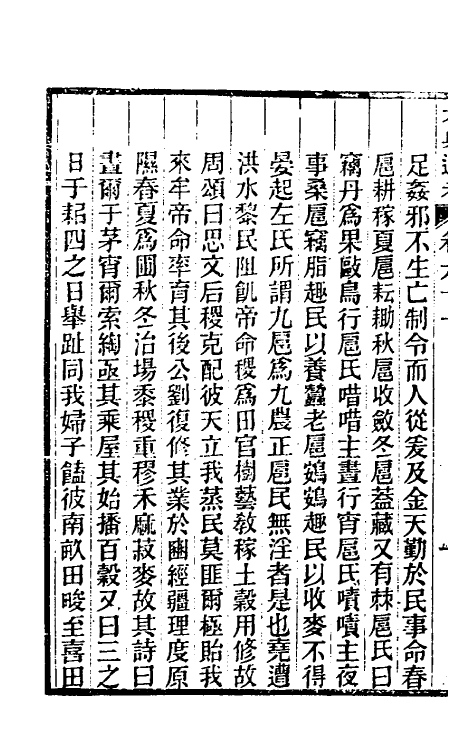 足姦邪不生亡制令而人從爰及金天勤於民事命春
扈耕稼夏扈耘耡秋扈收斂冬扈蓋藏又有棘扈氏曰
竊丹爲果敺鳥行扈氏唶唶主晝行宵扈氏嘖嘖主夜
事桑扈竊脂趣民以善蠶老扈鴳鴳趣民以收麥不得
晏起左氏所謂九扈爲九農正扈民無淫者是也堯遭
洪水黎民阻飢帝命稷爲田官樹藝敎稼土穀用修故
周頌曰思文后稷克配彼天立我蒸民莫匪爾極貽我
來牟帝命率育其後公劉復修其業於豳經疆理度原
隰春夏爲圃秋冬治場黍稷重穋禾麻菽麥故其詩曰
晝爾于茅宵爾索綯亟其乘屋其始播百穀又曰三之
日于耜四之日舉趾同我婦子饁彼南畝田畯至喜田